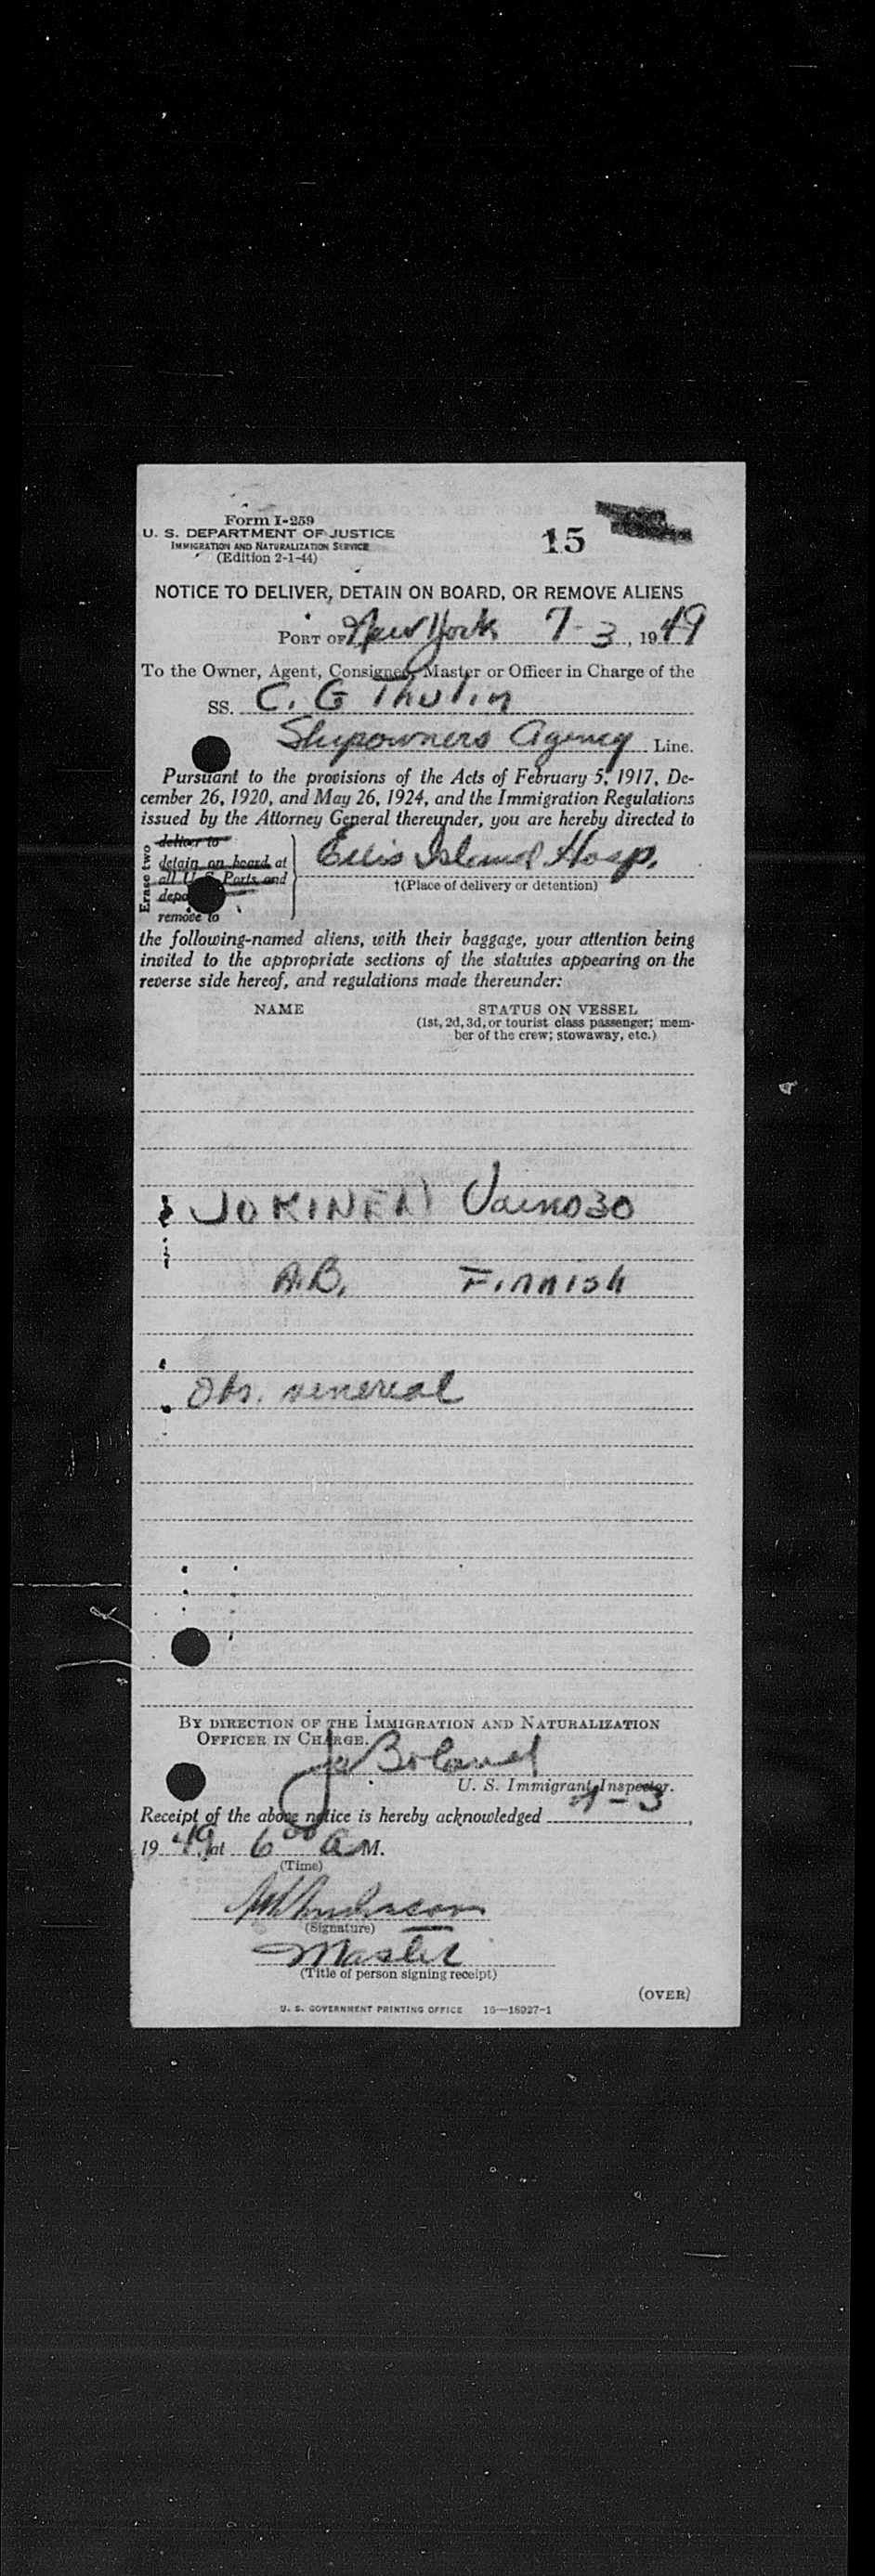 Form I-259
U. S. DEPARTMENT OF JUSTICE
IMMIGRATION AND NATURALIZATION SERVICE
(Edition 2-1-44)
15
NOTICE TO DELIVER, DETAIN ON BOARD, OR REMOVE ALIENS
PORT OF New York 7-3, 1949
To the Owner, Agent, Consignee, Master or Officer in Charge of the
SS. C. G Thulin
Shipowners Agency Line.
Pursuant to the provisions of the Acts of February 5, 1917, De-
cember 26, 1920, and May 26, 1924, and the Immigration Regulations
issued by the Attorney General thereunder, you are hereby directed to
Erase two
deliver to
detain on board at
all U. S. Ports and
remove to
Ellis Island Hosp.
†(Place of delivery or detention)
the following-named aliens, with their baggage, your attention being
invited to the appropriate sections of the statutes appearing on the
reverse side hereof, and regulations made thereunder:
NAME STATUS ON VESSEL
(1st, 2d, 3d, or tourist class passenger; mem-
ber of the crew; stowaway, etc.)
JOKINEN Vaino 30
A.B. Finnish
Obs. venereal
BY DIRECTION OF THE IMMIGRATION AND NATURALIZATION
OFFICER IN CHARGE.
Boland
U. S. Immigrant Inspector.
Receipt of the above notice is hereby acknowledged 7-3,
1949 at 6 00 A M.
(Time)
(Signature)
Master
(Title of person signing receipt)
(OVER)
U. S. GOVERNMENT PRINTING OFFICE 16—18927-1